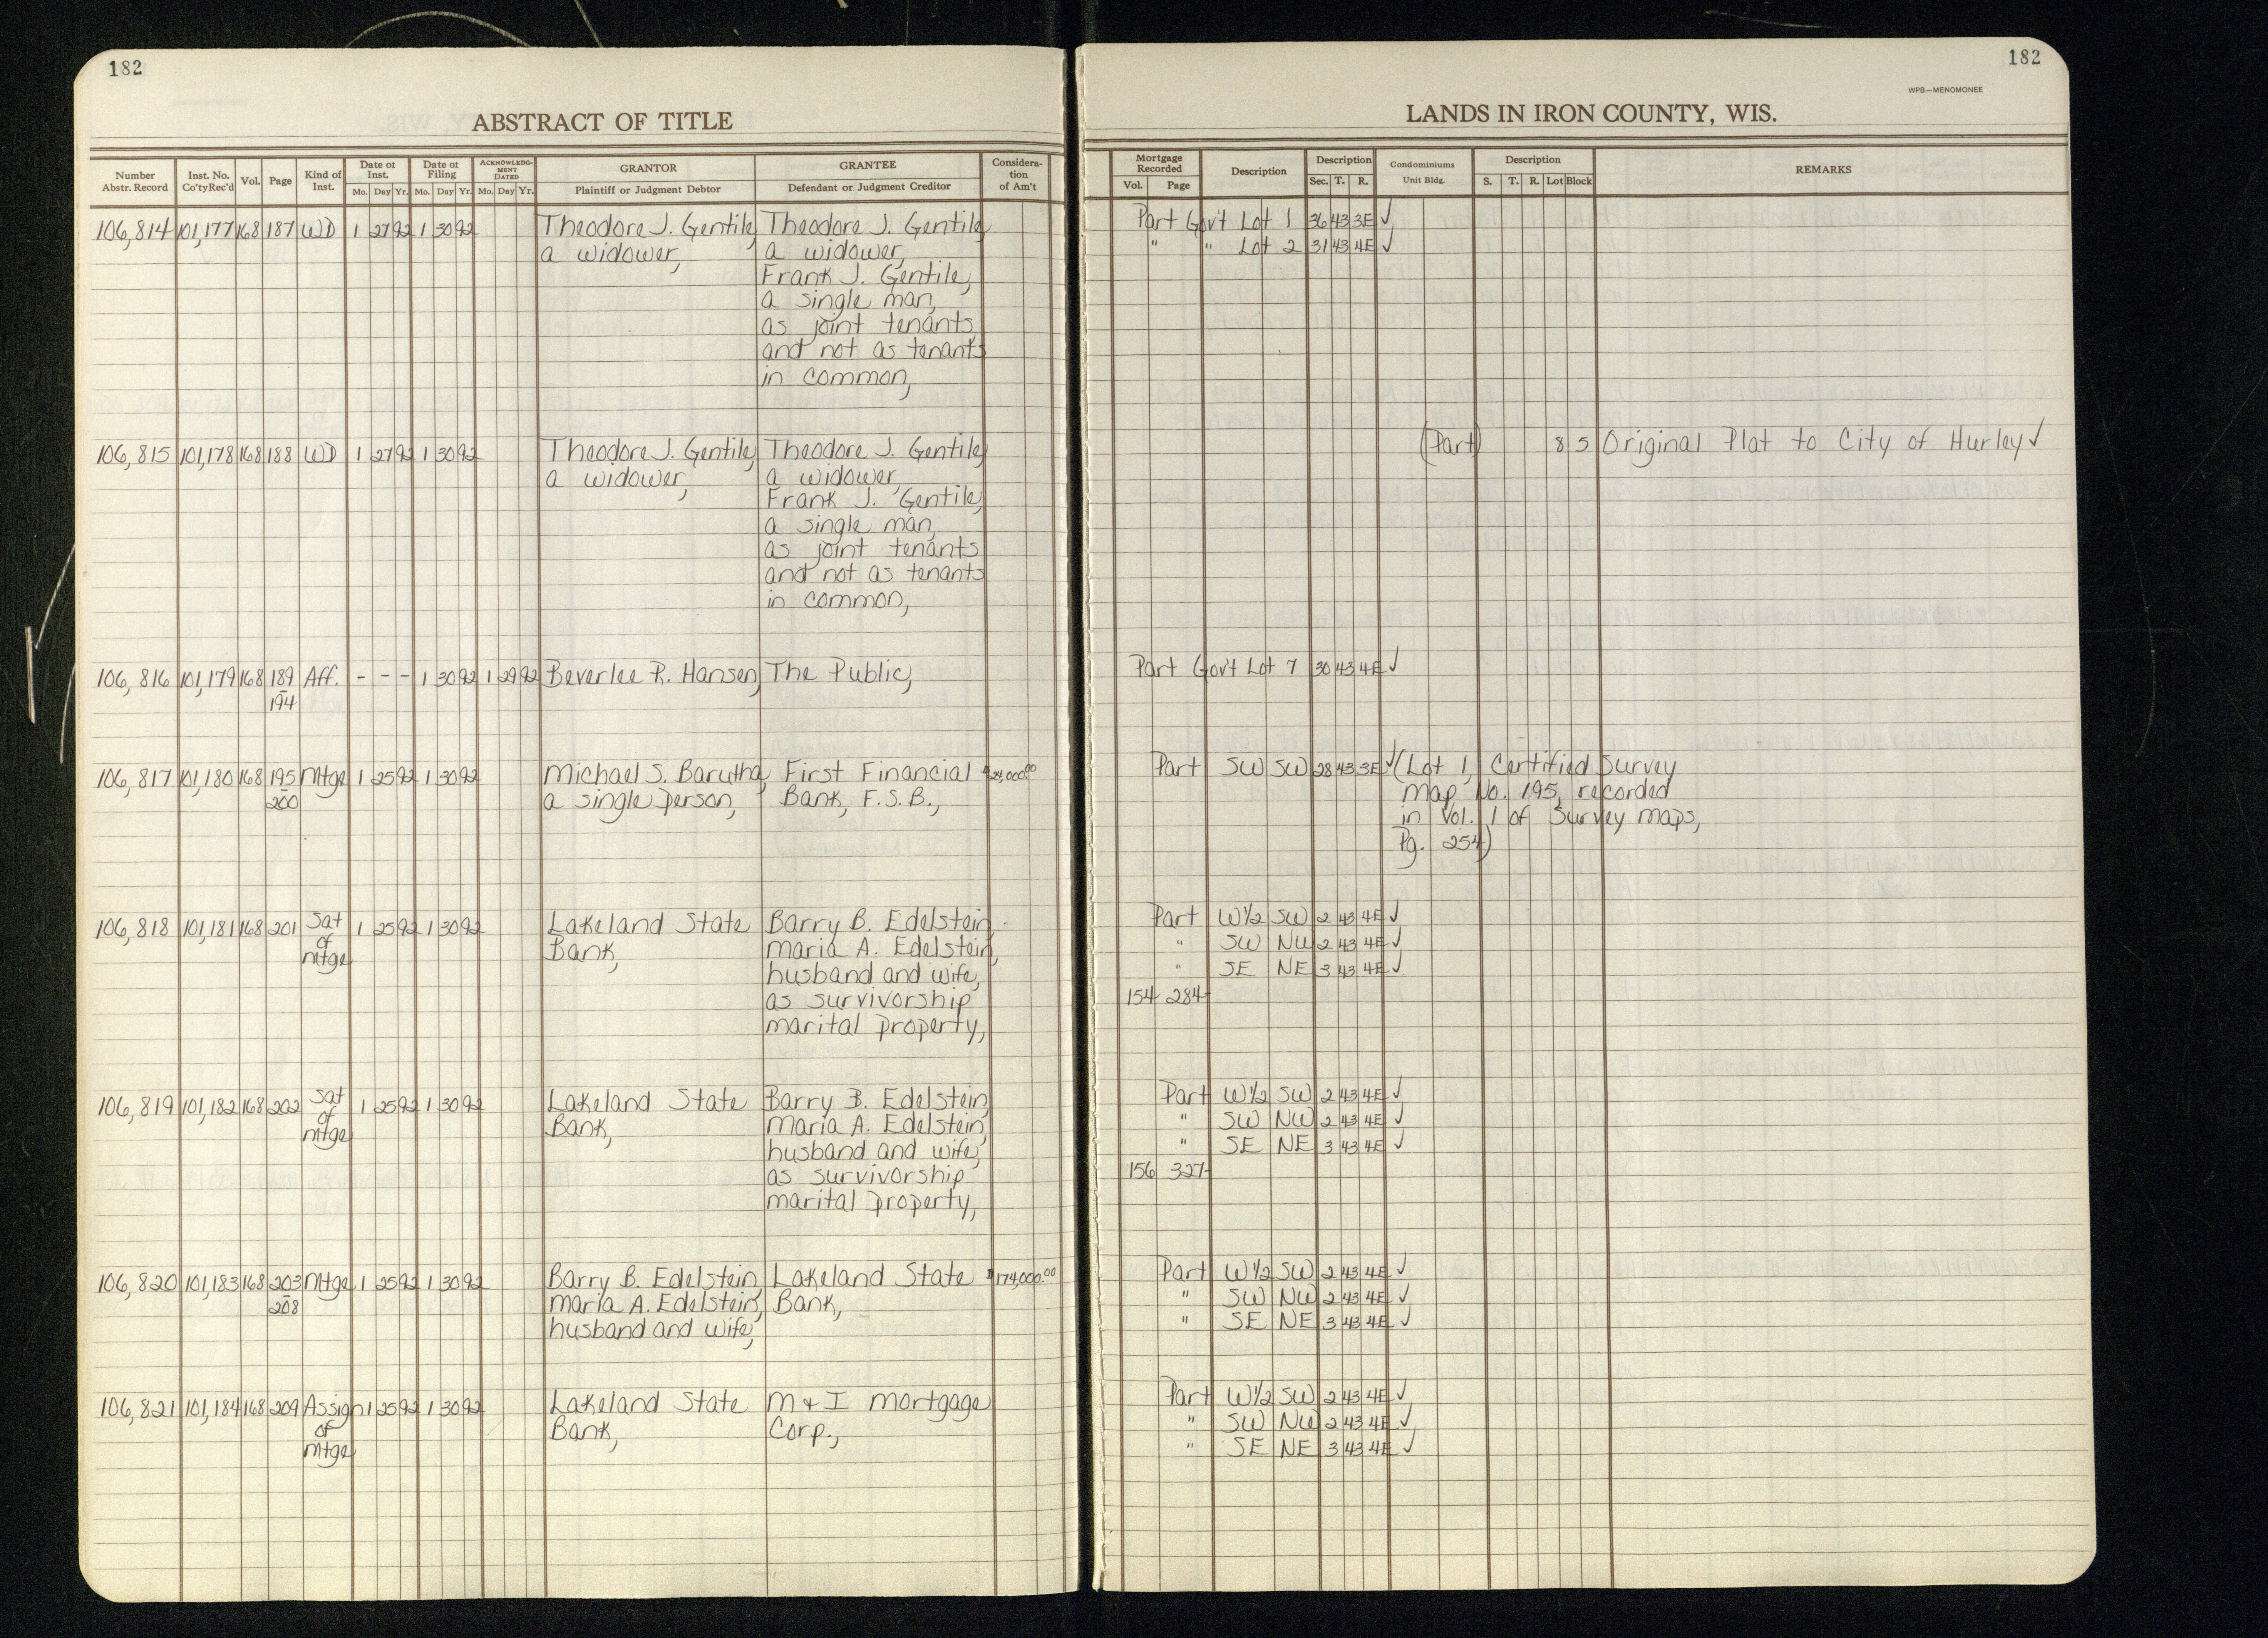 182
182
WPB—MENOMONEE
ABSTRACT OF TITLE
LANDS IN IRON COUNTY, WIS.
Number Abstr. Record | Inst. No. Co'ty Rec'd | Vol. | Page | Kind of Inst. | Date of Inst. Mo. Day Yr. | Date of Filing Mo. Day Yr. | ACKNOWLEDGMENT DATED Mo. Day Yr. | GRANTOR Plaintiff or Judgment Debtor | GRANTEE Defendant or Judgment Creditor | Consideration of Am't | Mortgage Recorded Vol. Page | Description | Description Sec. T. R. | Condominiums Unit Bldg. | Description S. T. R. Lot Block | REMARKS
106,814 101,177 168 187 WD 1 27 92 1 30 92 Theodore J. Gentile, Theodore J. Gentile, Part Gov't Lot 1 36 43 3E ✓
a widower, a widower, " " Lot 2 31 43 4E ✓
Frank J. Gentile,
a single man,
as joint tenants
and not as tenants
in common,
106,815 101,178 168 188 WD 1 27 92 1 30 92 Theodore J. Gentile, Theodore J. Gentile, (Part) 8 5 Original Plat to City of Hurley ✓
a widower, a widower,
Frank J. Gentile,
a single man,
as joint tenants
and not as tenants
in common,
106,816 101,179 168 189 Aff. - - - 1 30 92 1 29 92 Beverlee R. Hansen, The Public, Part Gov't Lot 7 30 43 4E ✓
-
194
106,817 101,180 168 195 Mtge 1 25 92 1 30 92 Michael S. Barutha, First Financial Part SW SW 28 43 3E ✓ (Lot 1, Certified Survey
- 200 a single person, Bank, F.S.B., Map No. 195, recorded
in Vol. 1 of Survey Maps,
Pg. 254)
106,818 101,181 168 201 Sat 1 25 92 1 30 92 Lakeland State Barry B. Edelstein, Part W½ SW 2 43 4E ✓
of Bank, Maria A. Edelstein, " SW NW 2 43 4E ✓
Mtge husband and wife, " SE NE 3 43 4E ✓
as survivorship 154 284
marital property,
106,819 101,182 168 202 Sat 1 25 92 1 30 92 Lakeland State Barry B. Edelstein, Part W½ SW 2 43 4E ✓
of Bank, Maria A. Edelstein, " SW NW 2 43 4E ✓
Mtge husband and wife, " SE NE 3 43 4E ✓
as survivorship 156 327
marital property,
106,820 101,183 168 203 Mtge 1 25 92 1 30 92 Barry B. Edelstein, Lakeland State $174,000.00 Part W½ SW 2 43 4E ✓
- 208 Maria A. Edelstein, Bank, " SW NW 2 43 4E ✓
husband and wife, " SE NE 3 43 4E ✓
106,821 101,184 168 209 Assign 1 25 92 1 30 92 Lakeland State M & I Mortgage Part W½ SW 2 43 4E ✓
of Bank, Corp., " SW NW 2 43 4E ✓
Mtge " SE NE 3 43 4E ✓